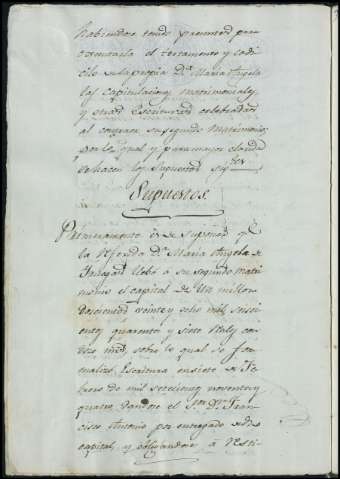 habiendose tenido presentes para
executarla el testamento y codi-
cilo de la propia D.ª Maria Angela
las capitulaciones matrimoniales,
y otras Escrituras celebradas
al contraer su segundo Matrimonio,
por lo qual y para mayor claridad
se hacen los supuestos sig.tes
Supuestos.
Primeramente es de suponer q.e
la referida D.ª Maria Angela de
llebó á su segundo matri-
monio el capital de un millon
doscientos veinte y ocho mil, seiscien-
tos quarenta y siete r.s v.n con
doce mrs, sobre lo qual se for-
malizó Escritura en siete de Fe-
brero de mil setecientos noventa y
quatro, dandose el S.r D.n Fran-
cisco Antonio por entregado de dho
capital, y obligandose á resti-